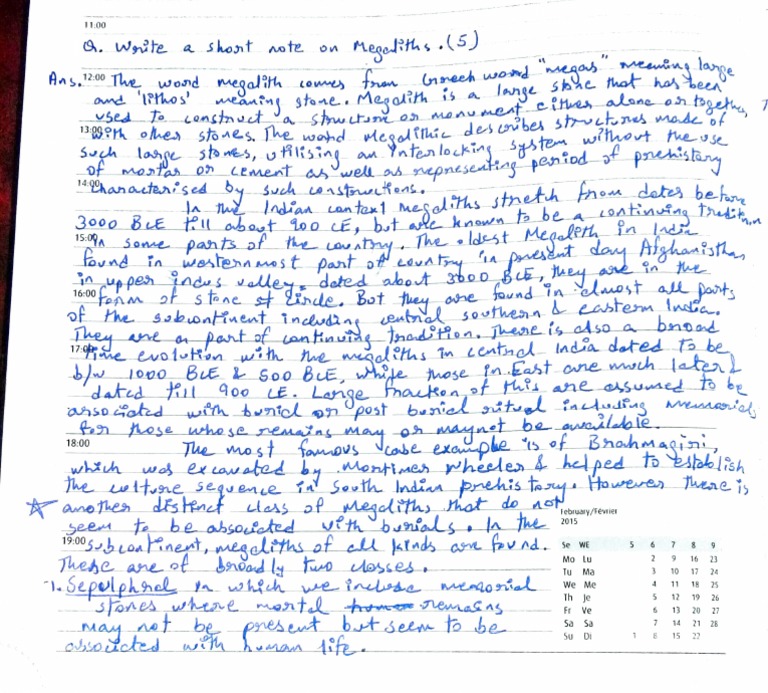 11:00
Q. Write a short note on Megaliths. (5)
Ans. 12:00 The word megalith comes from Greek word "megas" meaning large
and 'lithos' meaning stone. Megalith is a large stone that has been
used to construct a structure or monument either alone or together,
13:00 with other stones. The word Megalithic describes structures made of
such large stones, utilising an Interlocking system without the use
of mortar or cement as well as representing period of prehistory
14:00 characterised by such constructions.
In the Indian context megaliths stretch from dates before
3000 BCE till about 900 CE, but are known to be a continuing tradition
15:00 in some parts of the country. The oldest Megalith in India
found in westernmost part of country in present day Afghanisthan
in upper indus valley. dated about 3000 BCE, they are in the
16:00 form of stone circle. But they are found in almost all parts
of the subcontinent including central southern & eastern India.
They are a part of continuing tradition. There is also a broad
17:00 time evolution with the megaliths in central India dated to be
b/w 1000 BCE & 500 BCE, while those in East are much later &
dated till 900 CE. Large fraction of this are assumed to be
associated with burial or post burial ritual including memorials
for those whose remains may or maynot be available.
18:00 The most famous case example is of Brahmagiri,
which was excavated by Mortimer Wheeler & helped to establish
the culture sequence in South Indian prehistory. However there is
another distinct class of Megaliths that do not
seem to be associated with burials. In the
19:00 subcontinent, megaliths of all kinds are found.
These are of broadly two classes.
1. Sepulphral in which we include memorial
stones where mortal remains
may not be present but seem to be
associated with human life.
February/Février
2015
Se WE 5 6 7 8 9
Mo Lu 2 9 16 23
Tu Ma 3 10 17 24
We Me 4 11 18 25
Th Je 5 12 19 26
Fr Ve 6 13 20 27
Sa Sa 7 14 21 28
Su Di 1 8 15 22